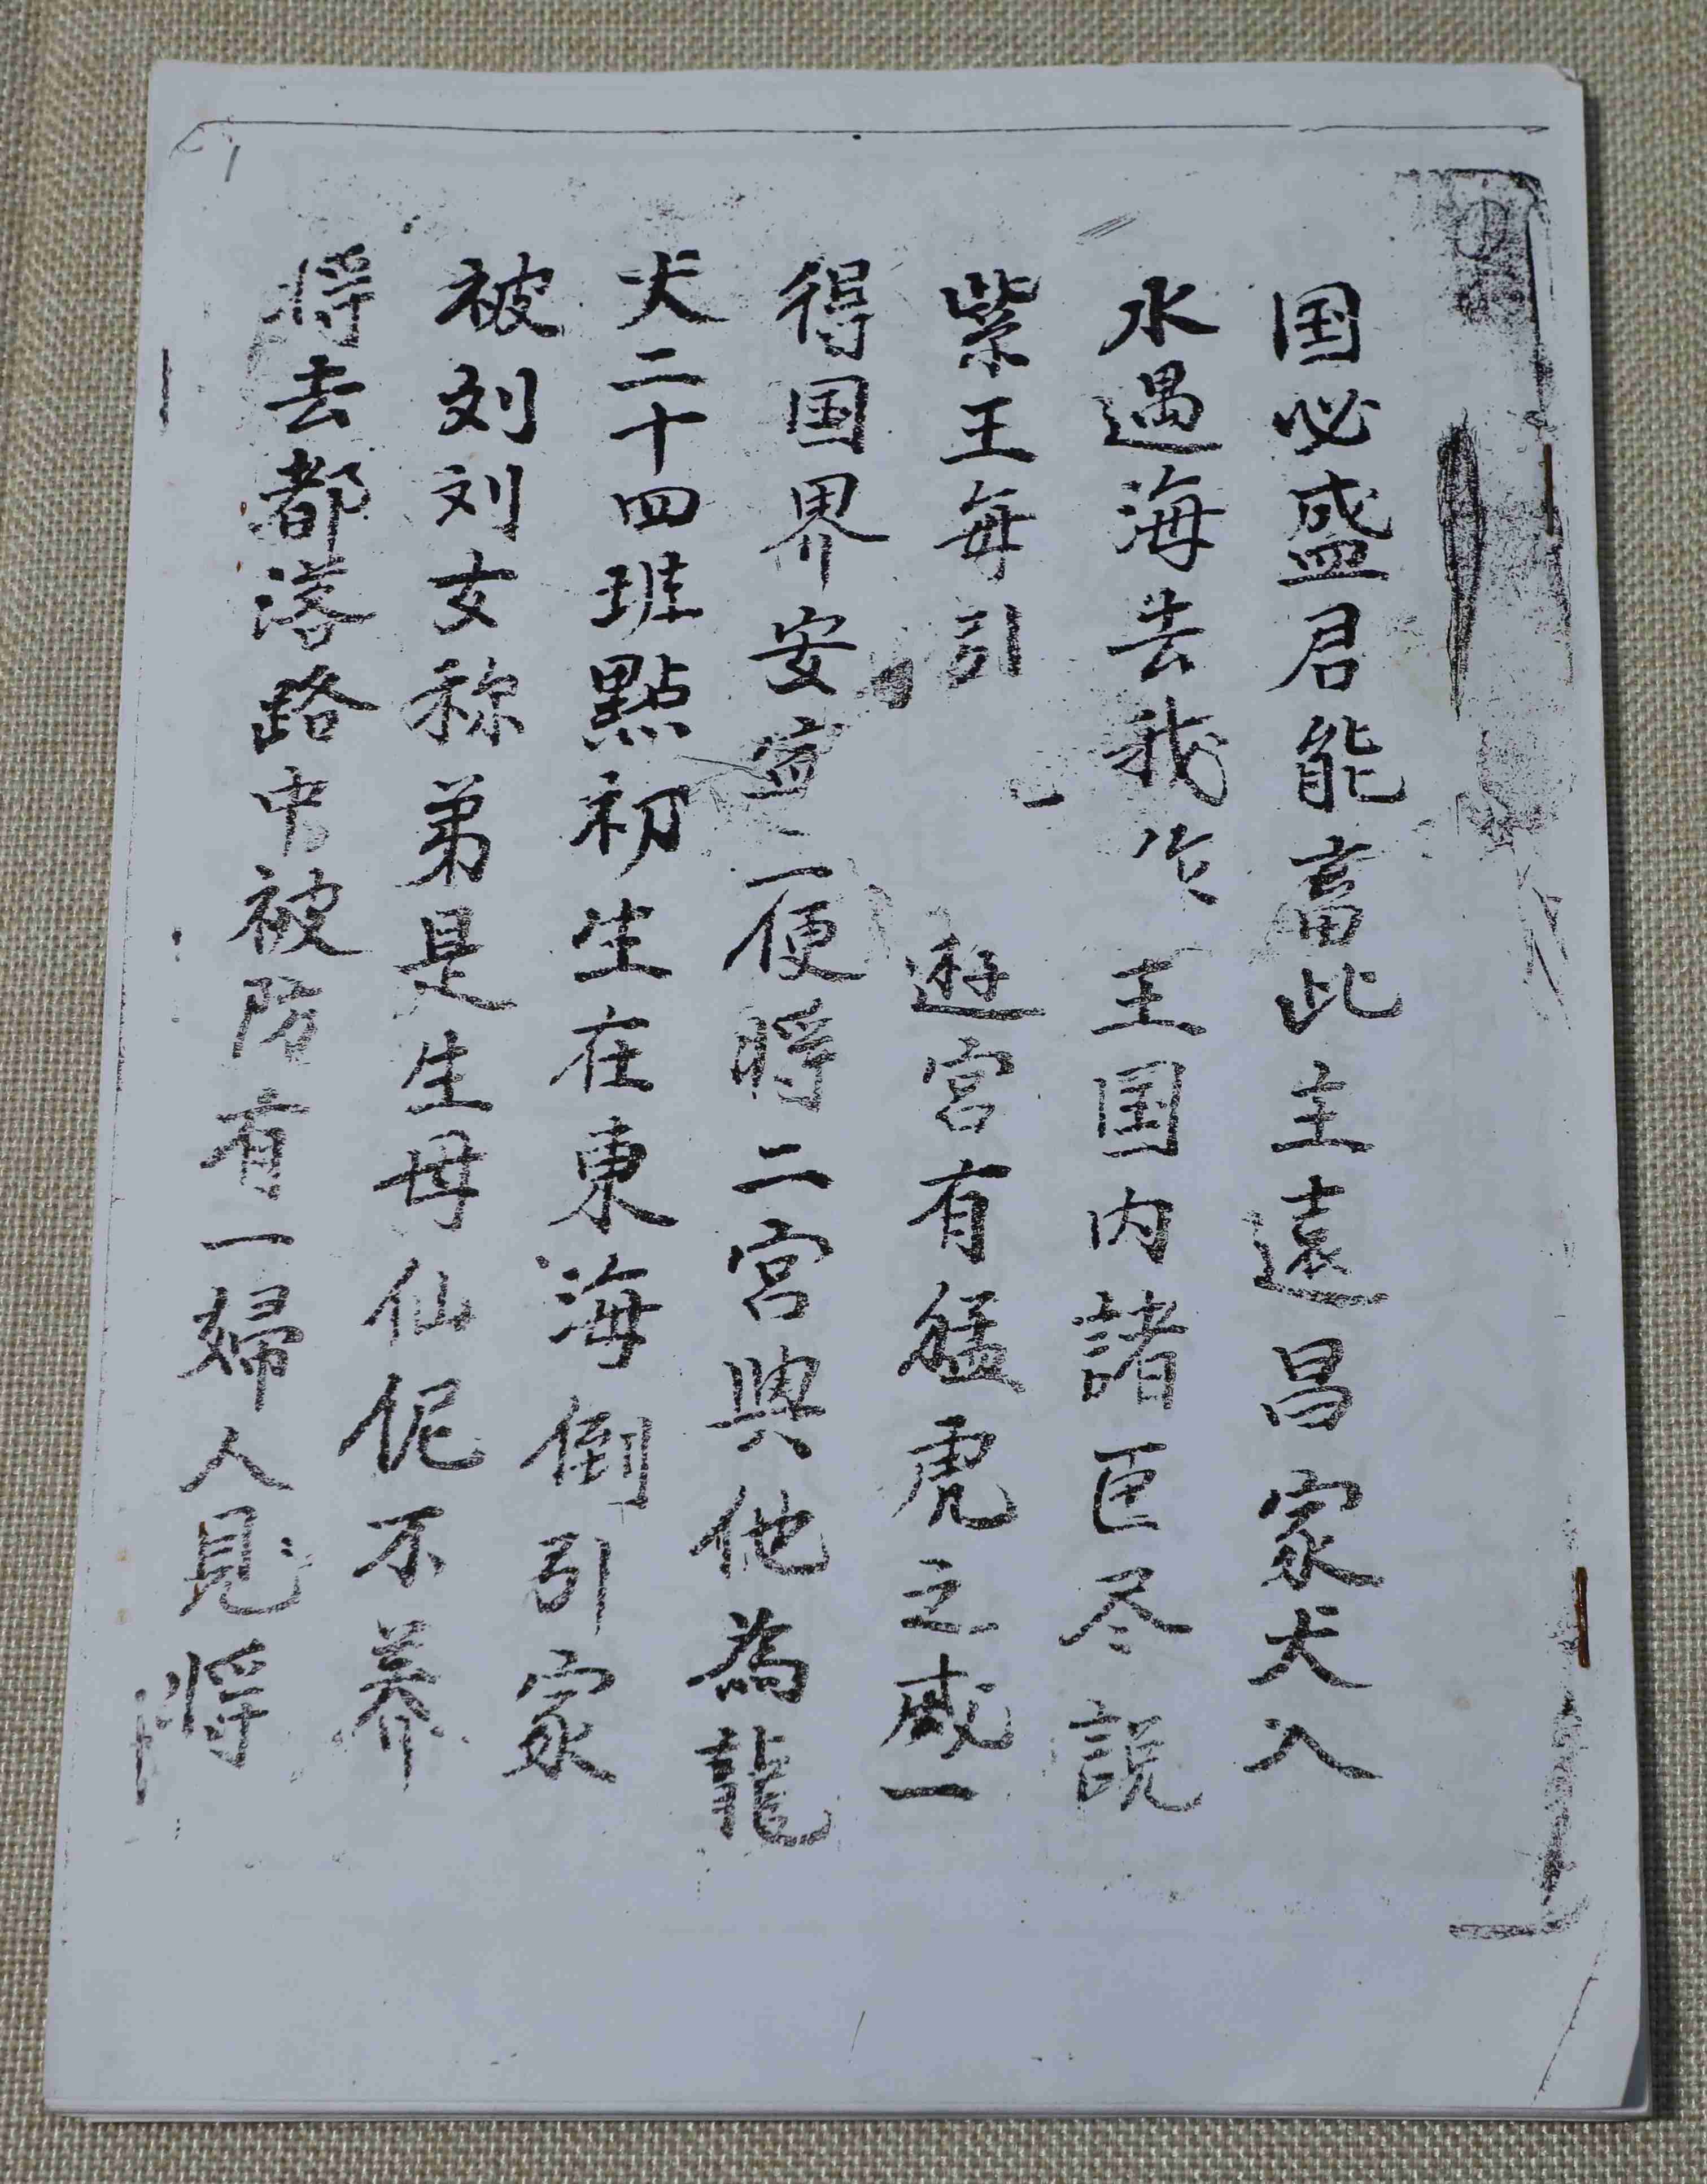 国必盛君能畜此主遠昌家犬入
水過海去我作 王国内諸臣尽説
紫王每引 遊宮有猛虎之威一
得国界安寧一便将二宮與他為龍
犬二十四班點初生在東海倒引家
被刘刘女称弟是生母仙伲不养
将去都落路中被防有一婦人見将
1